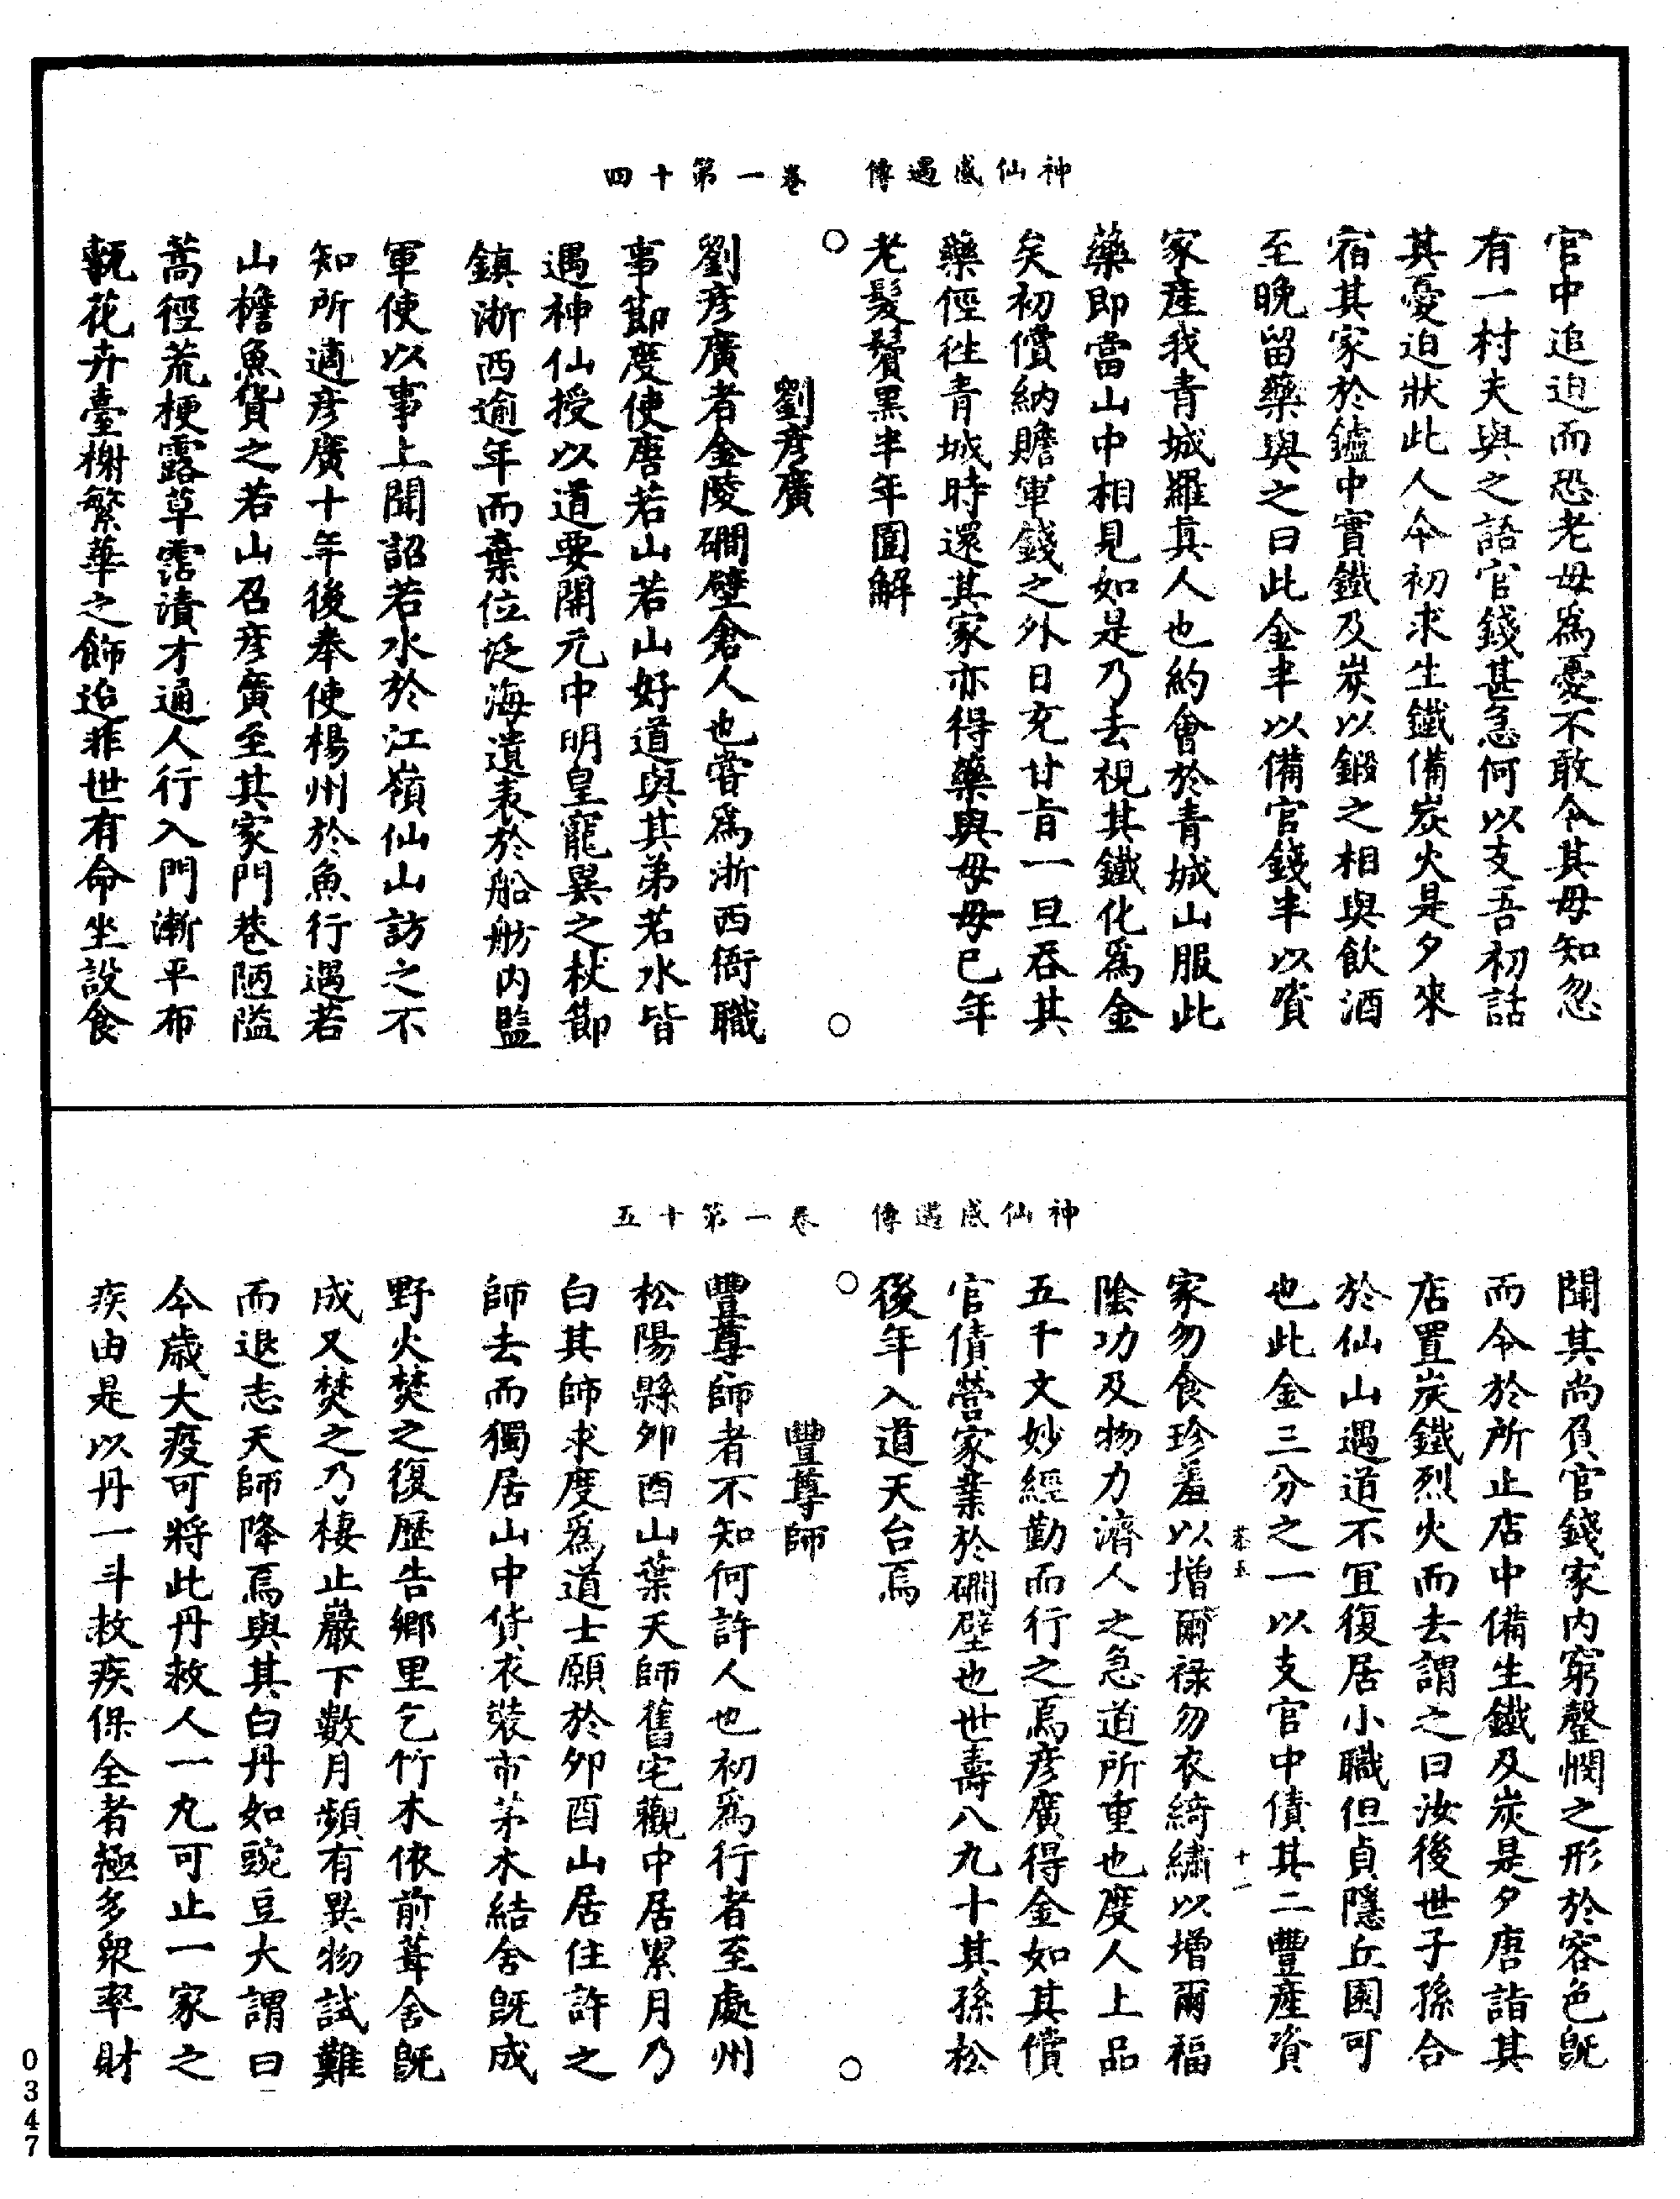 神仙感遇傳　卷一第十四
官中追迫而恐老母爲憂不敢令其母知忽
有一村夫與之語官錢甚急何以支吾初話
其憂迫狀此人令初求生鐵備炭火是夕來
宿其家於鑪中實鐵及炭以鍛之相與飲酒
至晚留藥與之曰此金半以備官錢半以資
家産我青城羅真人也約會於青城山服此
藥即當山中相見如是乃去視其鐵化爲金
矣初償納贍軍錢之外日充甘旨一旦吞其
藥徑往青城時還其家亦得藥與母母已年
老髮鬢黑半年圍解
劉彥廣
劉彥廣者金陵磵壁倉人也嘗爲浙西衙職
事節度使唐若山若山好道與其弟若水皆
遇神仙授以道要開元中明皇寵異之杖節
鎮浙西逾年而棄位泛海遺表於船舫内監
軍使以事上聞詔若水於江嶺仙山訪之不
知所適彥廣十年後奉使楊州於魚行遇若
山擔魚貨之若山召彥廣至其家門巷陋隘
蒿徑荒梗露草霑漬才通人行入門漸平布
甎花卉臺榭繁華之飾迨非世有命坐設食
神仙感遇傳　卷一第十五
聞其尚負官錢家内窮罄憫之形於容色既
而令於所止店中備生鐵及炭是夕唐詣其
店置炭鐵烈火而去謂之曰汝後世子孫合
於仙山遇道不宜復居小職但貞隱丘園可
也此金三分之一以支官中債其二豐産資
家勿食珍羞以增爾禄勿衣綺繡以增爾福
陰功及物力濟人之急道所重也度人上品
五千文妙經勤而行之焉彥廣得金如其償
官債營家業於磵壁也世壽八九十其孫松
後年入道天台焉
豐尊師
豐尊師者不知何許人也初爲行者至處州
松陽縣夘酉山葉天師舊宅觀中居累月乃
白其師求度爲道士願於夘酉山居住許之
師去而獨居山中貨衣裝市茅木結舍既成
野火焚之復歷告鄉里乞竹木依前葺舍既
成又焚之乃棲止巖下數月頻有異物試難
而退志天師降焉與其白丹如豌豆大謂曰
今歲大疫可將此丹救人一丸可止一家之
疾由是以丹一斗救疾保全者極多衆率財
十一
0347